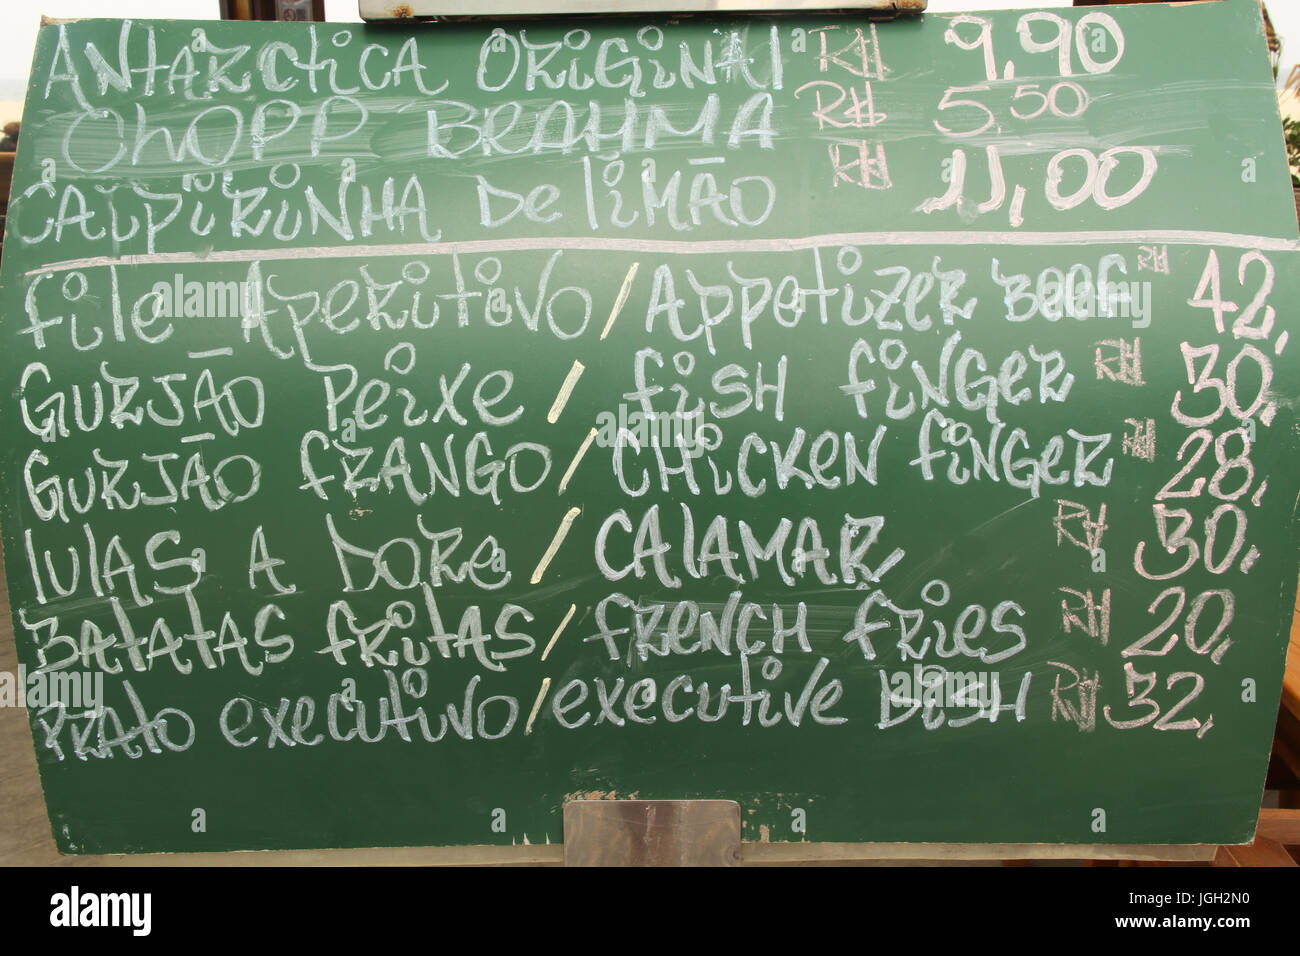 ANTARCTICA ORIGINAL R$ 9,90
CHOPP BRAHMA R$ 5,50
CAIPIRINHA DE LIMÃO R$ 11,00
FILE APERITIVO / APPETIZER BEEF R$ 42,
GURJÃO PEIXE / FISH FINGER R$ 30,
GURJÃO FRANGO / CHICKEN FINGER R$ 28,
LULAS A DORE / CALAMAR R$ 30,
BATATAS FRITAS / FRENCH FRIES R$ 20,
PRATO EXECUTIVO / EXECUTIVE DISH R$ 32,
alamy stock photo
JGH2N0
www.alamy.com